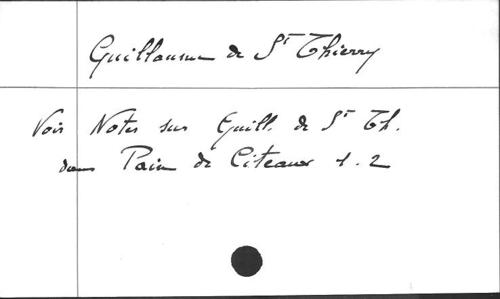 Guillaume de St Thierry
Voir Notes sur Guill. de St Th.
dans Pain de Citeaux 1. 2